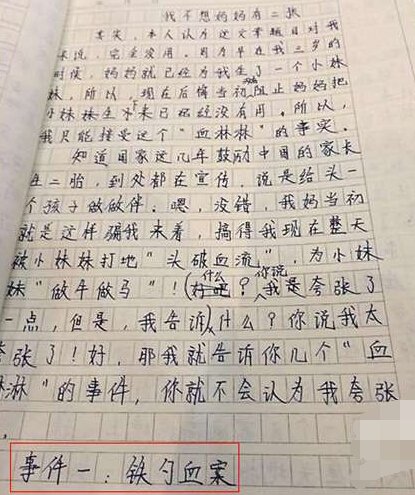 我不想妈妈有二胎
其实，本人认为这文章题目对我
来说，完全没用。因为早在我三岁的
时候，妈妈就已经为我生了一个小妹
妹，所以，现在后悔当初没阻止妈妈把
小妹妹生下来已经没有用。所以，
我只能接受这个“血林林”的事实。
知道国家这几年鼓励中国的家长
生二胎，到处都在宣传，说是给头一
个孩子做做伴。嗯，没错，我妈当初
就是这样骗我来着，搞得我现在整天
被小妹妹打地“头破血流”，为小妹
妹“做牛做马”！(什么？你说我是夸张了
一点，但是，我告诉什么？你说我太
夸张了！好，那我就告诉你几个“血
淋淋”的事件，你就不会认为我夸张
事件一：铁勺血案